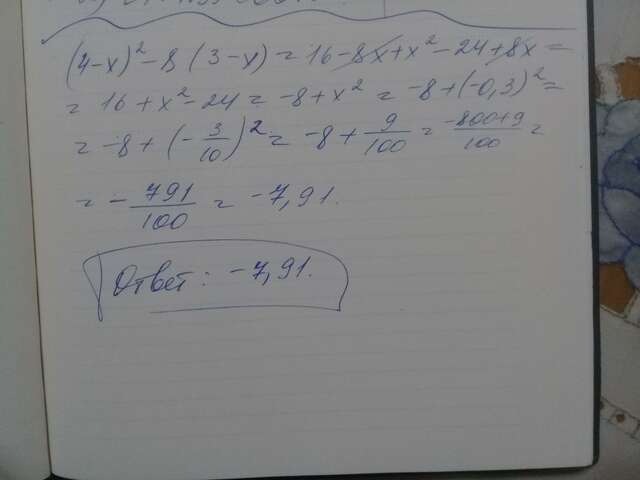 (4-x)² - 8(3-x) = 16 - 8x + x² - 24 + 8x =
= 16 + x² - 24 = -8 + x² = -8 + (-0,3)² =
= -8 + (-3/10)² = -8 + 9/100 = -800+9/100 =
= -791/100 = -7,91.
Ответ: -7,91.